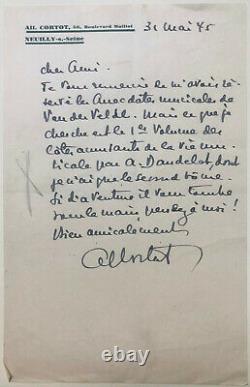 Alf. CORTOT, 50, Boulevard Maillot
NEUILLY-s.-Seine
31 Mai 45
cher Ami.
Je vous remercie de m'avoir ré-
servé les Anecdotes musicales de
Van de Velde. Mais ce que je
cherche est le 1er Volume des
de la Vie mu-
sicale par A. Dandelot, dont
je n'ai que le second tôme.
Si d'aventure il vous tombe
sous la main, pensez à moi!
bien amicalement
Alf Cortot
ebay